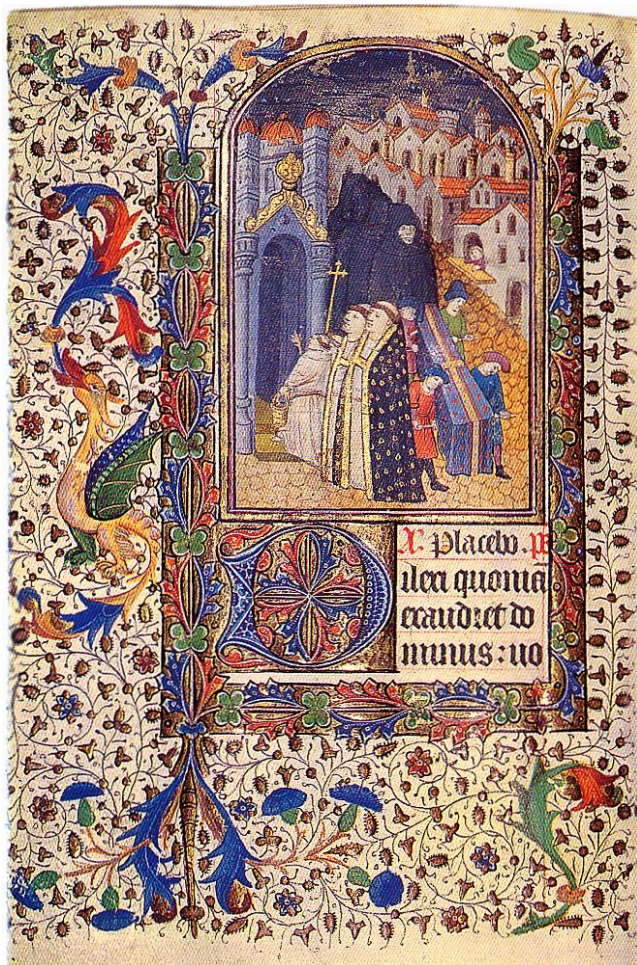 A. Placebo. ps
Dilexi quoniā
exaudiet do
minus: uo